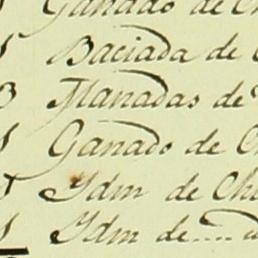 Ganado de
Baciada de
Manadas de
Ganado de
Ydm de Ch
Ydm de....